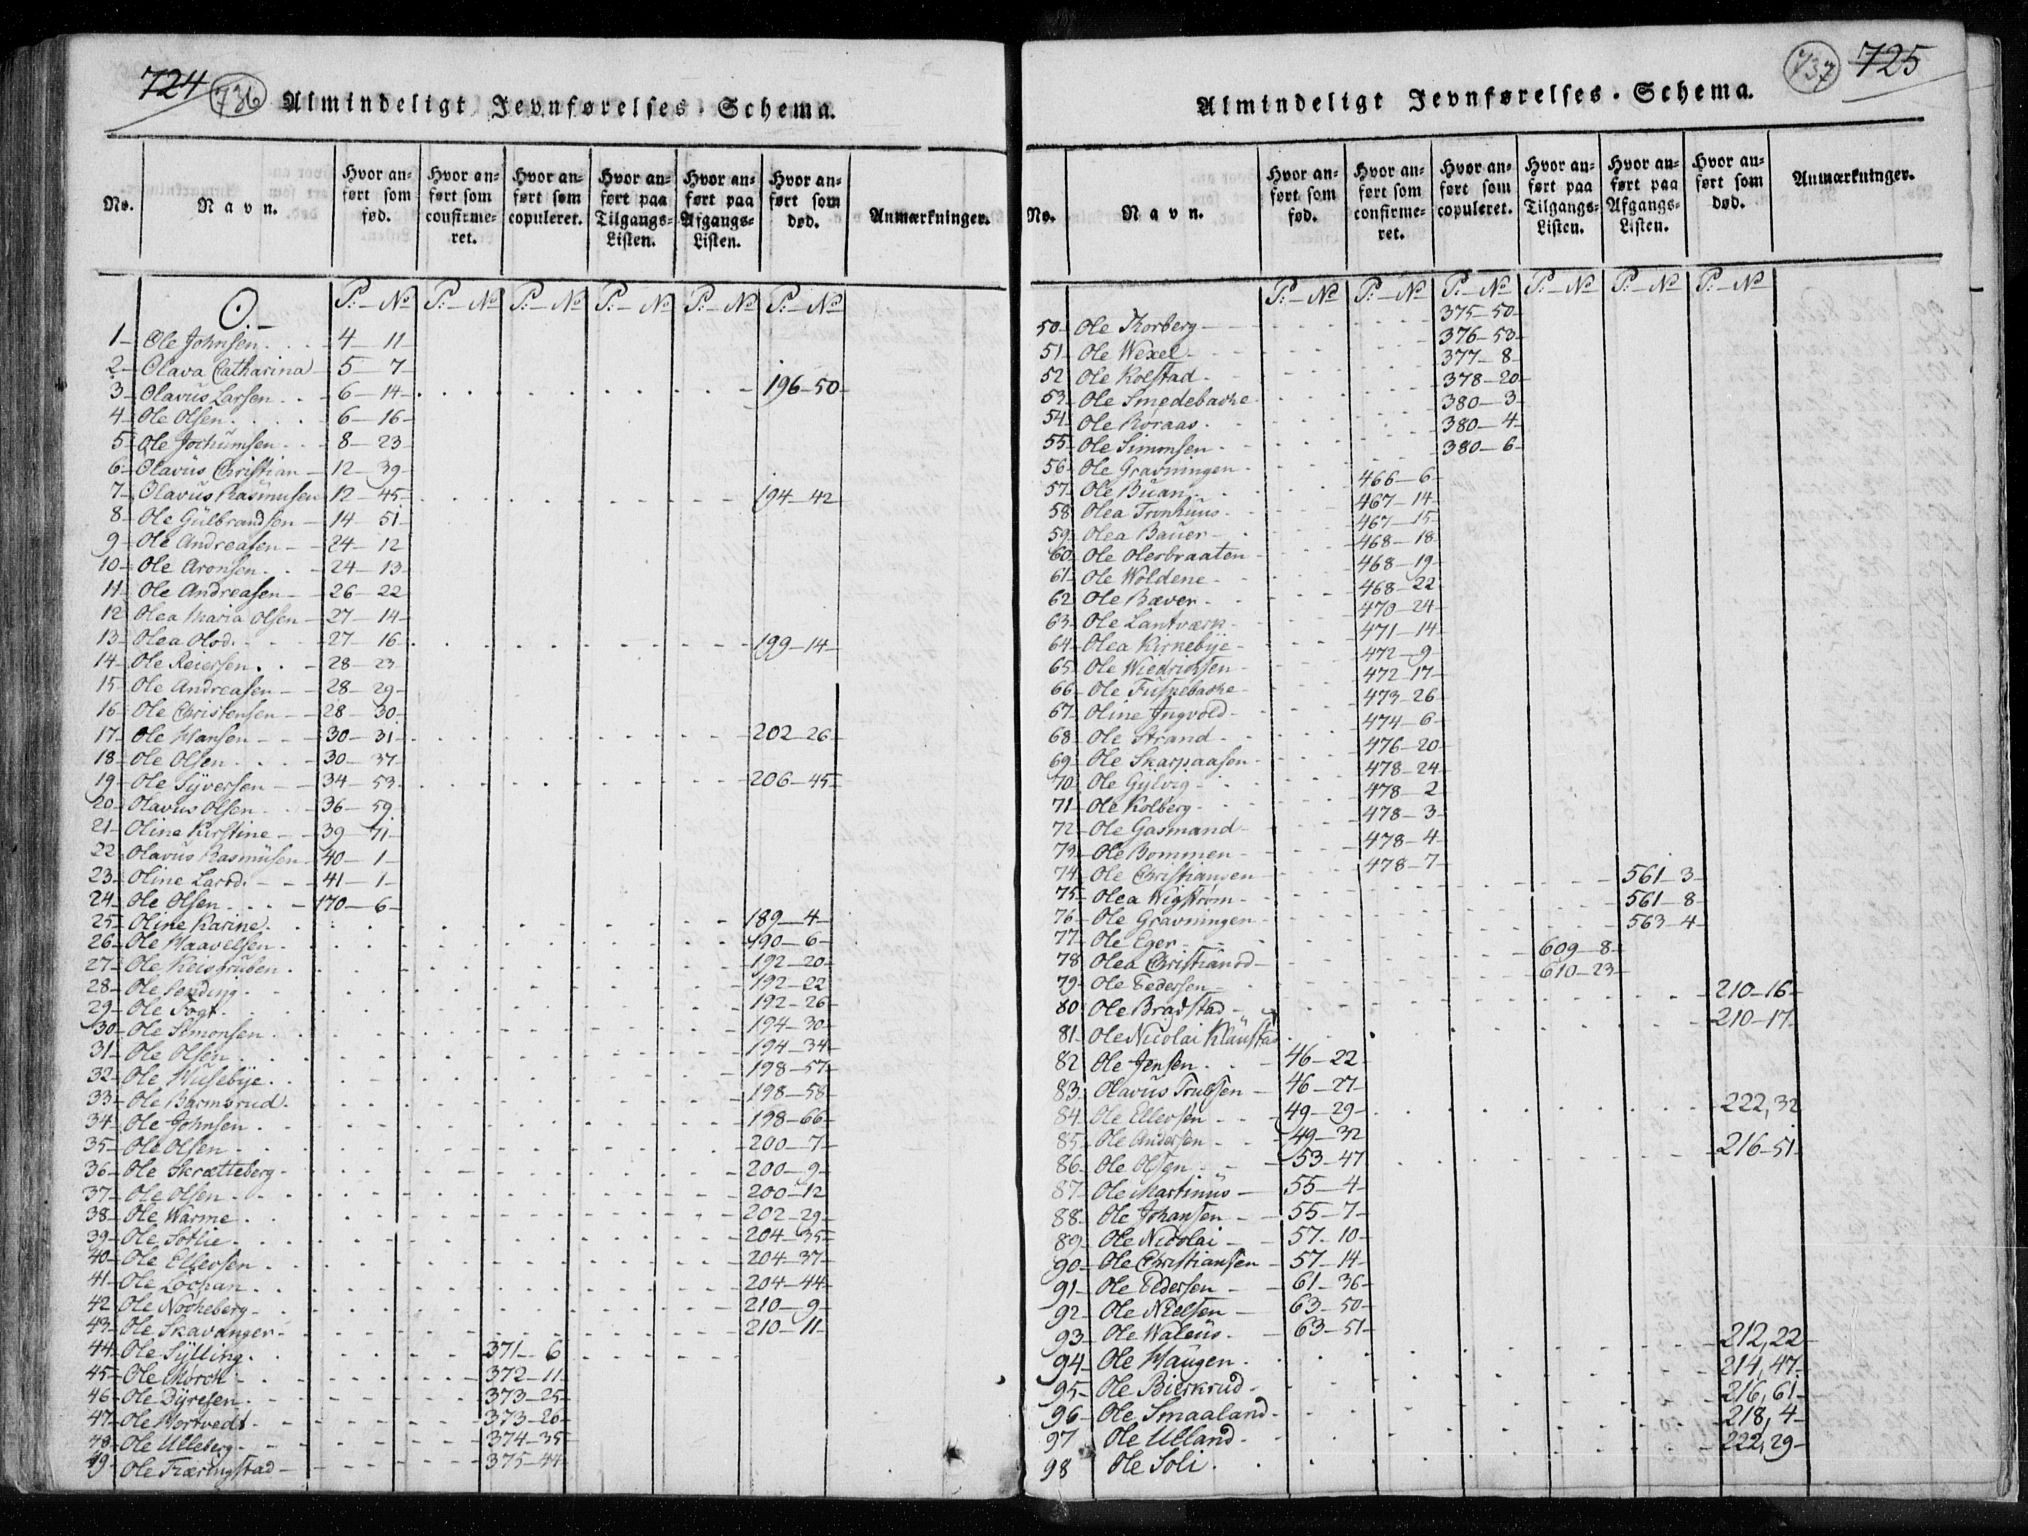 724 736 Almindeligt Jevnførelses-Schema.
No. Navn. Hvor anført som fød. Hvor anført som confirmeret. Hvor anført som copuleret. Hvor anført paa Tilgangs-Listen. Hvor anført paa Afgangs-Listen. Hvor anført som død. Anmærkninger.
O. P. — No P. — No P. — No P. — No P. — No P. — No
1 Ole Johnsen 4 — 11
2 Olava Catharina 5 — 7
3 Olavus Larsen 6 — 14 196 — 50
4 Ole Olsen 6 — 16
5 Ole Jochumsen 8 — 23
6 Olavüs Christian 12 — 39
7 Olavüs Rasmusen 12 — 45 194 — 42
8 Ole Gülbrandsen 14 — 51
9 Ole Andreasen 24 — 12
10 Ole Aronsen 24 — 13
11 Ole Andreasen 26 — 22
12 Olea Maria Olsen 27 — 14
13 Olea Olsd. 27 — 16 199 — 14
14 Ole Reiersen 28 — 23
15 Ole Andreasen 28 — 29
16 Ole Christensen 28 — 30
17 Ole Hansen 30 — 31 202 — 26
18 Ole Olsen 30 — 37
19 Ole Syversen 34 — 53 206 — 45
20 Olavus Olsen 36 — 59
21 Oline Kirstine 39 — 71
22 Olavüs Rasmüsen 40 — 1
23 Oline Larsd. 41 — 1
24 Ole Olsen 170 — 6
25 Oline Karine 189 — 4
26 Ole Haavelsen 190 — 6
27 Ole Keisgruben 192 — 20
28 Ole Sending 192 — 22
29 Ole Fogt 192 — 26
30 Ole Simonsen 194 — 30
31 Ole Olsen 194 — 34
32 Ole Husebye 198 — 57
33 Ole Barmsrud 198 — 58
34 Ole Johnsen 198 — 66
35 Ole Olsen 200 — 7
36 Ole Skrætteberg 200 — 9
37 Ole Olsen 200 — 12
38 Ole Warme 202 — 29
39 Ole Sotlie 204 — 35
40 Ole Ellersen 204 — 37
41 Ole Lochan 204 — 44
42 Ole Nockeberg 210 — 9
43 Ole Skavanger 210 — 11
44 Ole Sylling 371 — 6
45 Ole Morch 372 — 11
46 Ole Dyresen 373 — 25
47 Ole Hortvedt 373 — 26
48 Ole Ulleberg 374 — 35
49 Ole Træringstad 375 — 44
737 725
Almindeligt Jevnførelses-Schema.
No. Navn. Hvor anført som fød. Hvor anført som confirmeret. Hvor anført som copuleret. Hvor anført paa Tilgangs-Listen. Hvor anført paa Afgangs-Listen. Hvor anført som død. Anmærkninger.
P. — No P. — No P. — No P. — No P. — No P. — No
50 Ole Thorberg 375 — 50
51 Ole Wexel 376 — 53
52 Ole Kolstad 377 — 8
53 Ole Smedebacke 378 — 20
54 Ole Røraas 380 — 3
55 Ole Simonsen 380 — 4
56 Ole Gravningen 380 — 6
57 Ole Büan 466 — 6
58 Olea Tronhuus 467 — 14
59 Olea Bauer 467 — 15
60 Ole Olerbraaten 468 — 18
61 Ole Woldene 468 — 19
62 Ole Bæver 468 — 22
63 Ole Lantværk 470 — 24
64 Olea Kirkebye 471 — 14
65 Ole Wiedricksen 472 — 9
66 Ole Fuskebacke 472 — 17
67 Oline Ingvold 473 — 26
68 Ole Strand 474 — 6
69 Ole Skarpaasen 476 — 20
70 Ole Gylvig 478 — 24
71 Ole Kolberg 478 — 2
72 Ole Gasmand 478 — 3
73 Ole Bommen 478 — 4
74 Ole Christiansen 478 — 7
75 Olea Wigstrøm 561 — 3
76 Ole Gravningen 561 — 8
77 Ole Eger 563 — 4
78 Olea Christiansd 609 — 8
79 Ole Pedersen 610 — 23
80 Ole Bradstad 210 — 16
81 Ole Nicolai Klaustad 210 — 17
82 Ole Jensen 46 — 22
83 Olavus Trulsen 46 — 27
84 Ole Ellersen 49 — 29 222, 32
85 Ole Andersen 49 — 32
86 Ole Olsen 53 — 47 216 — 51
87 Ole Martinüs 55 — 4
88 Ole Johansen 55 — 7
89 Ole Nicolai 57 — 10
90 Ole Christiansen 57 — 14
91 Ole Pedersen 61 — 36
92 Ole Nielsen 63 — 50
93 Ole Waleüs 63 — 51
94 Ole Haugen 212, 22
95 Ole Bierkrud 214, 47
96 Ole Smaaland 216, 61
97 Ole Ulland 218, 4
98 Ole Soli 222, 29